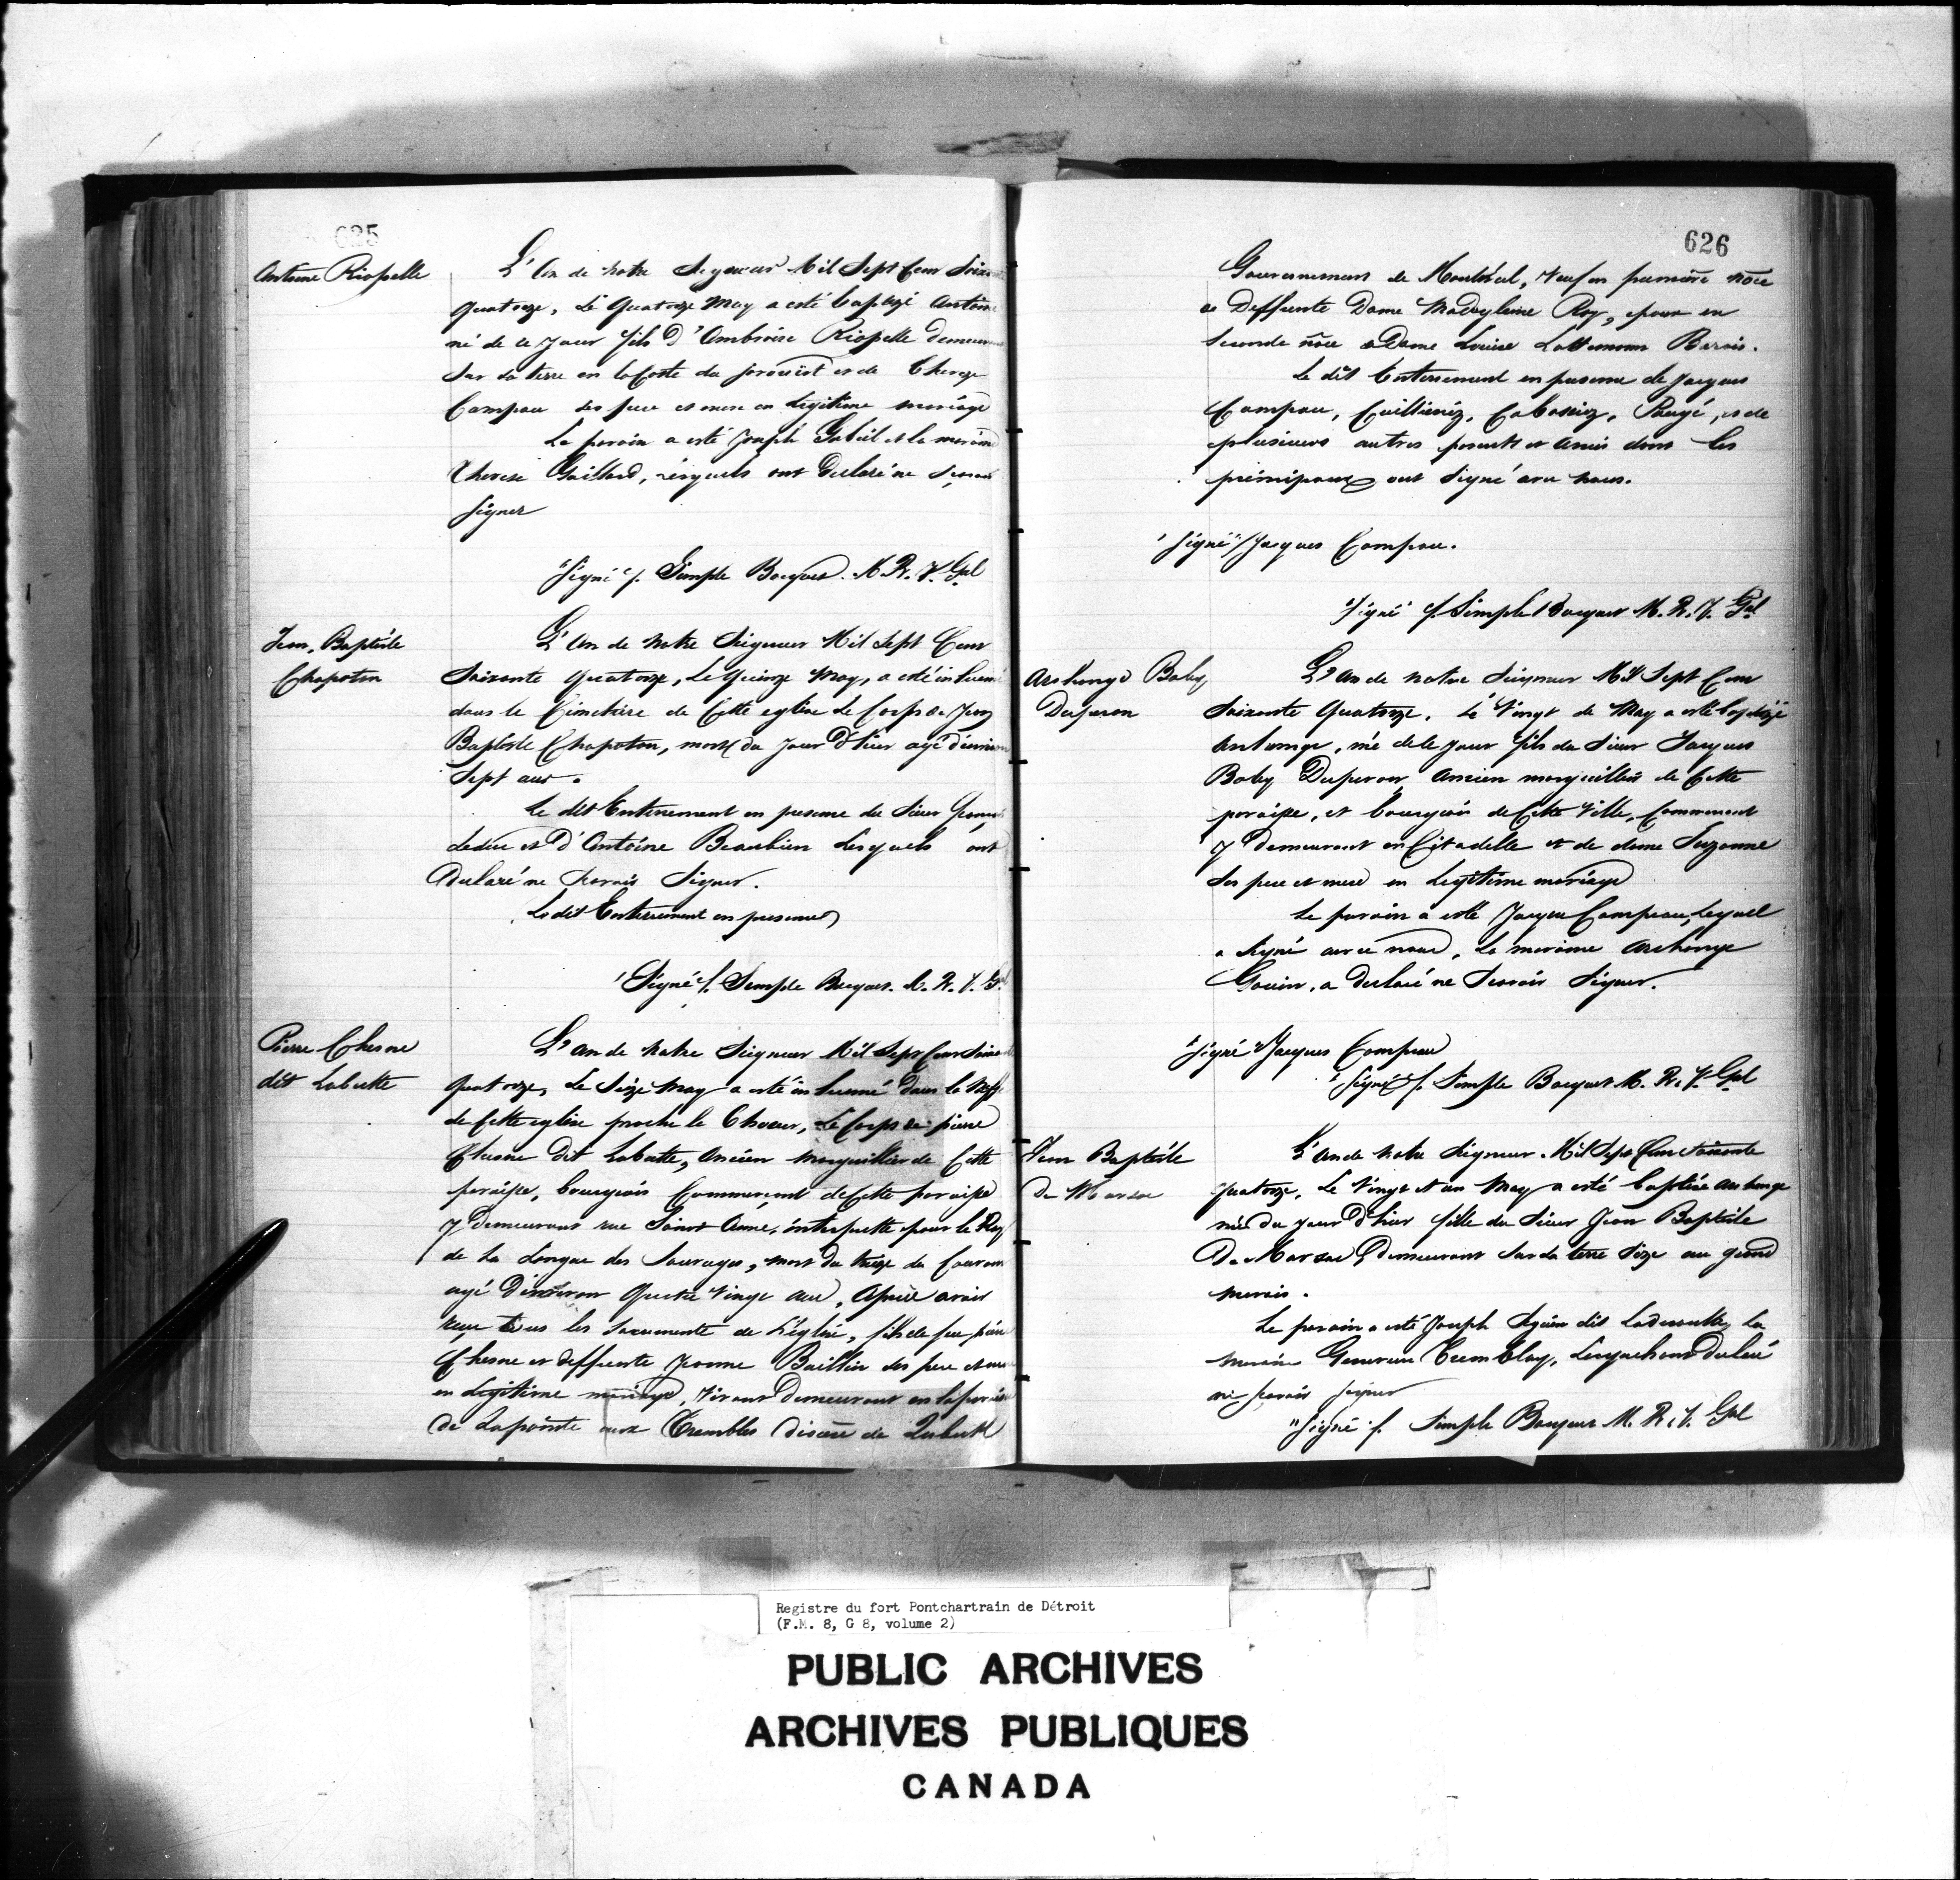 625
Antoine Riopelle
L'An de notre Seigneur Mil Sept Cent Soixante
quatorze, Le quatorze May a esté baptizé Antoine
né de ce jour fils d'Ambroise Riopelle demeurant
sur sa terre en la Coste du sorouëst et de Therese
Campau ses pere et mere en legitime mariage
Le parain a esté Joseph Gobeil et la maraine
Therese Gaillard, lesquels ont declaré ne scavoir
signer
"Signé" f. Simple Bocquet. M. R. V. Gal
Jean, Baptiste
Chapoton
L'An de notre Seigneur Mil Sept Cent
Soixante quatorze, Le quinze May, a esté inhumé
dans le Cimetiere de Cette eglise Le Corps de Jean
Baptiste Chapoton, mort du jour d'hier agé d'environ
Sept ans.
Le dit Enterrement en presence du Sieur
Leduc et d'Antoine Beaubien lesquels ont
Declaré ne scavoir signer.
Le dit Enterrement en presence
"Signé" f. Simple Bocquet. M. R. V. Gal
Pierre Chesne
dit Labutte
L'an de notre Seigneur Mil Sept Cent Soixante
quatorze, Le Seize May a esté inhumé dans la Neffe
de Cette eglise proche le Choeur, Le Corps de pierre
Chesne dit Labutte, Ancien Marguillier de Cette
paroisse, bourgeois Commerçant de Cette paroisse
y Demeurant rue Saint Anne, interprette pour le Roy
de La Langue des Sauvages, mort du treize du Courant
agé d'environ Quatre Vingt ans, Aprés avoir
reçu tous les Sacuments de L'église, fils de feu pierre
Chesne et deffunte Jeanne Baillin ses pere et mere
en Legitime mariage, vivant Demeurant en la paroisse
de Lapointe aux Trembles diocese de Quebek
626
Gouvernement de Montréal, Veuf en premiere noce
de Deffunte Dame Madeyleine Roy, epoux en
seconde noce de Dame Louise Barois.
Le dit Enterrement en presence de Jacques
Campau, Cuillieriez, Cabassiez, Paugé, et de
plusieurs autres parents et Amis dont les
principaux ont signé avec nous.
"Signé" Jacques Campau.
"Signé" f. Simple Bocquet M. R. V. Gal
Archange Baby
Duperon
L'An de notre Seigneur Mil Sept Cent
Soixante Quatorze. Le Vingt de May a esté baptizé
Archange, né de le jour fils du Sieur Jacques
Baby Duperon, Ancien marguillier de Cette
paroisse, et bourgeois de Cette Ville, Commercant
y Demeurant en Citadelle et de dame Suzanne
Ses pere et mere en Legitime mariage
Le parain a esté Jacques Campeau, lequel
a signé avec nous, La maraine Archange
Gouin, a declaré ne scavoir signer.
"Signé" Jacques Campeau
"Signé" f. Simple Bocquet M. R. V. Gal
Jean Baptiste
De Marsac
L'an de notre Seigneur Mil Sept Cent Soixante
quatorze, Le Vingt et un May a esté baptisée Archange
née du jour d'hier fille du Sieur Jean Baptiste
De Marsac Demeurant Sur sa terre Size au grand
marais.
Le parain a esté Joseph Seguin dit Laderoutte, La
maraine Genevieve Tremblay, Lesquels ont Declaré
ne scavoir signer
"Signé" f. Simple Bocquet M. R. V. Gal
Registre du fort Pontchartrain de Détroit
(F.M. 8, G 8, volume 2)
PUBLIC ARCHIVES
ARCHIVES PUBLIQUES
CANADA